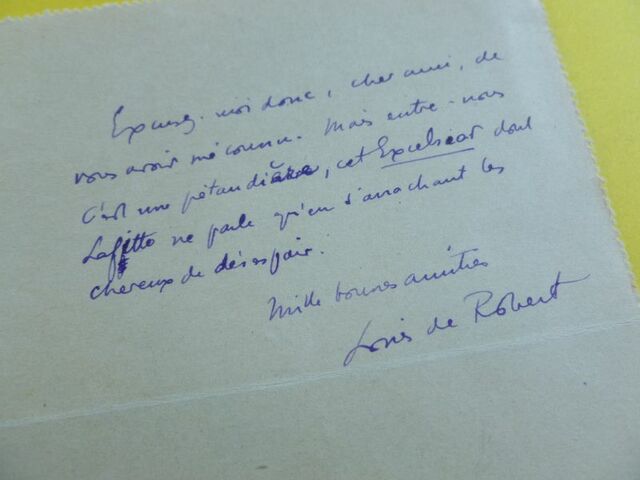 Excusez-moi donc, cher ami, de
vous avoir méconnu. Mais entre-nous
c'est une pétaudière, cet Excelsior dont
Lafitte ne parle qu'en s'arrachant les
cheveux de désespoir.
Mille bonnes amitiés
Louis de Robert